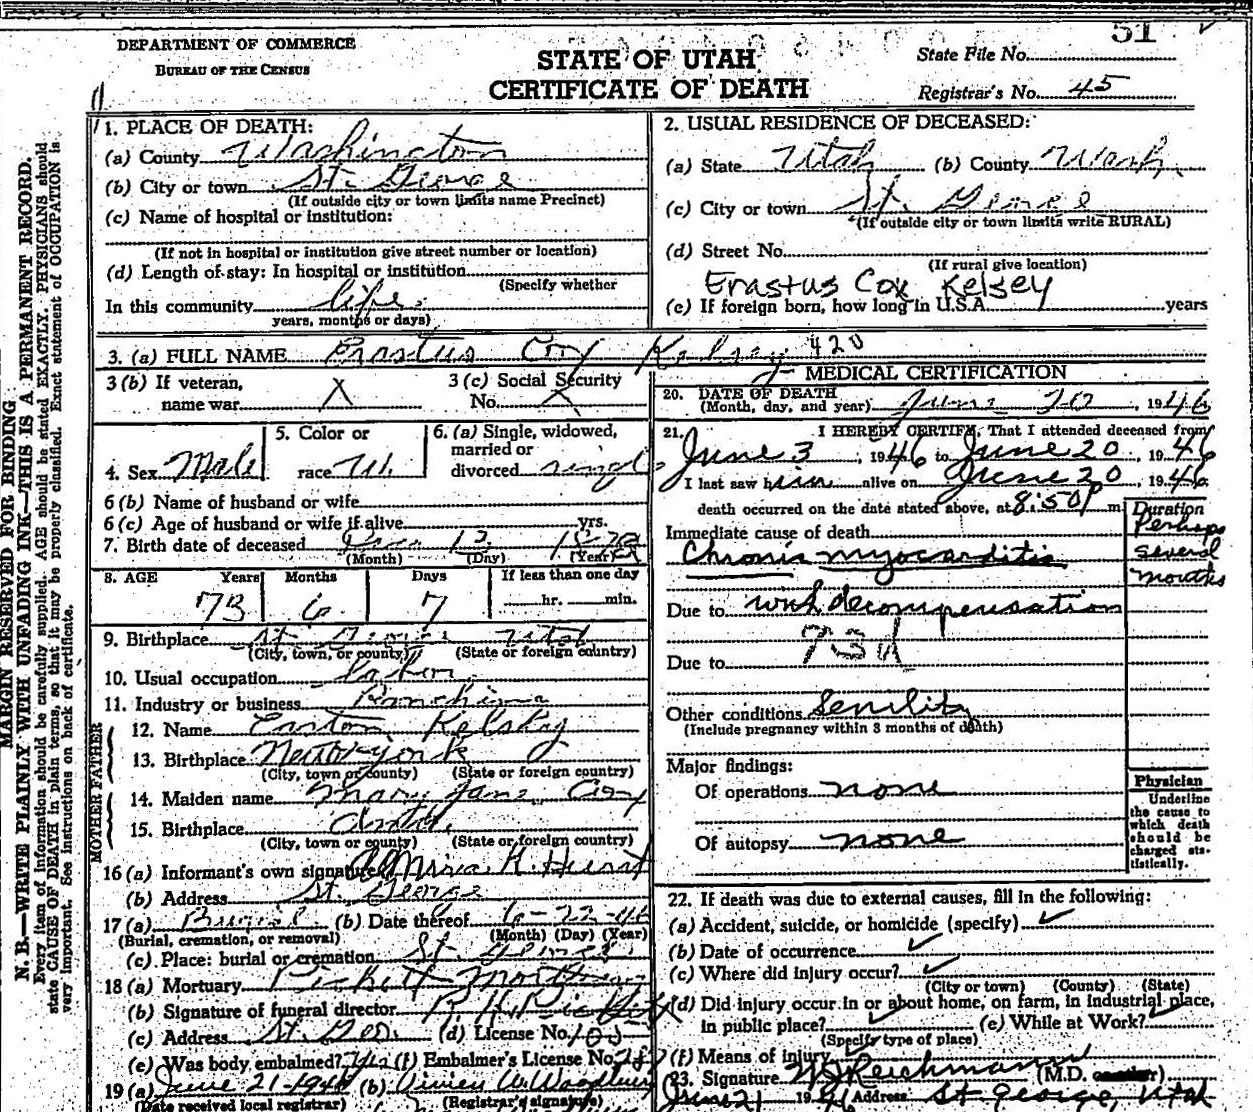 51
DEPARTMENT OF COMMERCE
BUREAU OF THE CENSUS
STATE OF UTAH
CERTIFICATE OF DEATH
State File No.
Registrar's No. 45
MARGIN RESERVED FOR BINDING
N. B.—WRITE PLAINLY WITH UNFADING INK—THIS IS A PERMANENT RECORD.
Every item of information should be carefully supplied. AGE should be stated EXACTLY. PHYSICIANS should
state CAUSE OF DEATH in plain terms, so that it may be properly classified. Exact statement of OCCUPATION is
very important. See instructions on back of certificate.
1. PLACE OF DEATH:
(a) County Washington
(b) City or town St. George
(If outside city or town limits name Precinct)
(c) Name of hospital or institution:
(If not in hospital or institution give street number or location)
(d) Length of stay: In hospital or institution
(Specify whether
In this community life
years, months or days)
2. USUAL RESIDENCE OF DECEASED:
(a) State Utah (b) County Wash.
(c) City or town St. George
(If outside city or town limits write RURAL)
(d) Street No.
(If rural give location)
Erastus Cox Kelsey
(e) If foreign born, how long in U.S.A. years
3. (a) FULL NAME Erastus Coy Kelsey 420
3 (b) If veteran, name war X
3 (c) Social Security No. X
4. Sex Male
5. Color or race W.
6. (a) Single, widowed, married or divorced single
6 (b) Name of husband or wife
6 (c) Age of husband or wife if alive yrs.
7. Birth date of deceased Dec. 13
(Month) (Day) (Year)
8. AGE Years Months Days If less than one day
73 6 7 hr. min.
9. Birthplace St. George Utah
(City, town, or county) (State or foreign country)
10. Usual occupation labor
11. Industry or business Ranching
FATHER
12. Name Easton Kelsey
13. Birthplace New York
(City, town or county) (State or foreign country)
MOTHER
14. Maiden name Mary Jane Coy
15. Birthplace
(City, town or county) (State or foreign country)
16 (a) Informant's own signature Mrs. A. K. Hurst
(b) Address St. George
17 (a) Burial (b) Date thereof 6-22-46
(Burial, cremation, or removal) (Month) (Day) (Year)
(c) Place: burial or cremation St. George
18 (a) Mortuary Pickett Mortuary
(b) Signature of funeral director
(c) Address St. Geo. (d) License No. 105
(e) Was body embalmed? Yes (f) Embalmer's License No.
19 (a) June 21-1946 (b) Vivien W. Woodbury
(Date received local registrar) (Registrar's signature)
MEDICAL CERTIFICATION
20. DATE OF DEATH
(Month, day, and year) June 20, 1946
21. I HEREBY CERTIFY, That I attended deceased from
June 3, 1946 to June 20, 1946
I last saw him alive on June 20, 1946
death occurred on the date stated above, at 8:50 P m.
Duration
Immediate cause of death
Chronic myocarditis
Perhaps several months
Due to with decompensation
73d
Due to
Other conditions Senility
(Include pregnancy within 3 months of death)
Major findings:
Of operations none
Of autopsy none
Physician
Underline the cause to which death should be charged statistically.
22. If death was due to external causes, fill in the following:
(a) Accident, suicide, or homicide (specify) ✓
(b) Date of occurrence ✓
(c) Where did injury occur? ✓
(City or town) (County) (State)
(d) Did injury occur in or about home, on farm, in industrial place,
in public place? ✓ (e) While at Work? ✓
(Specify type of place)
(f) Means of injury ✓
23. Signature W J Reichmann (M.D. or other)
June 21 1946 Address St. George, Utah